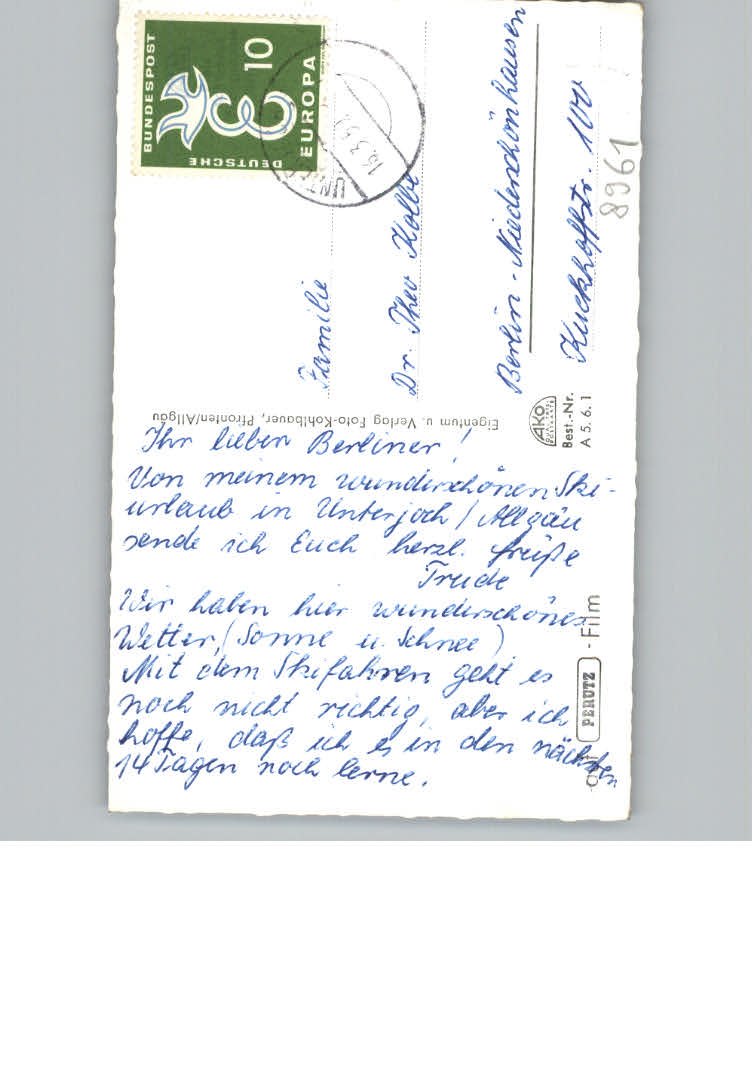 DEUTSCHE BUNDESPOST
10
EUROPA
16.3.5
Familie
Dr. Theo Kolbe
Berlin - Niederschönhausen
Kuckhoffstr. 100
8961
Eigentum u. Verlag Foto-Kohlbauer, Pfronten/Allgäu
AKO
Best.-Nr.
A 5. 6. 1
Ihr lieben Berliner!
Von meinem wunderschönen Ski-
urlaub in Unterjoch / Allgäu
sende ich Euch herzl. Grüße
Trude
Wir haben hier wunderschönes
Wetter, (Sonne u. Schnee)
Mit dem Skifahren geht es
noch nicht richtig, aber ich
hoffe, daß ich es in den nächsten
14 Tagen noch lerne.
PERUTZ - Film